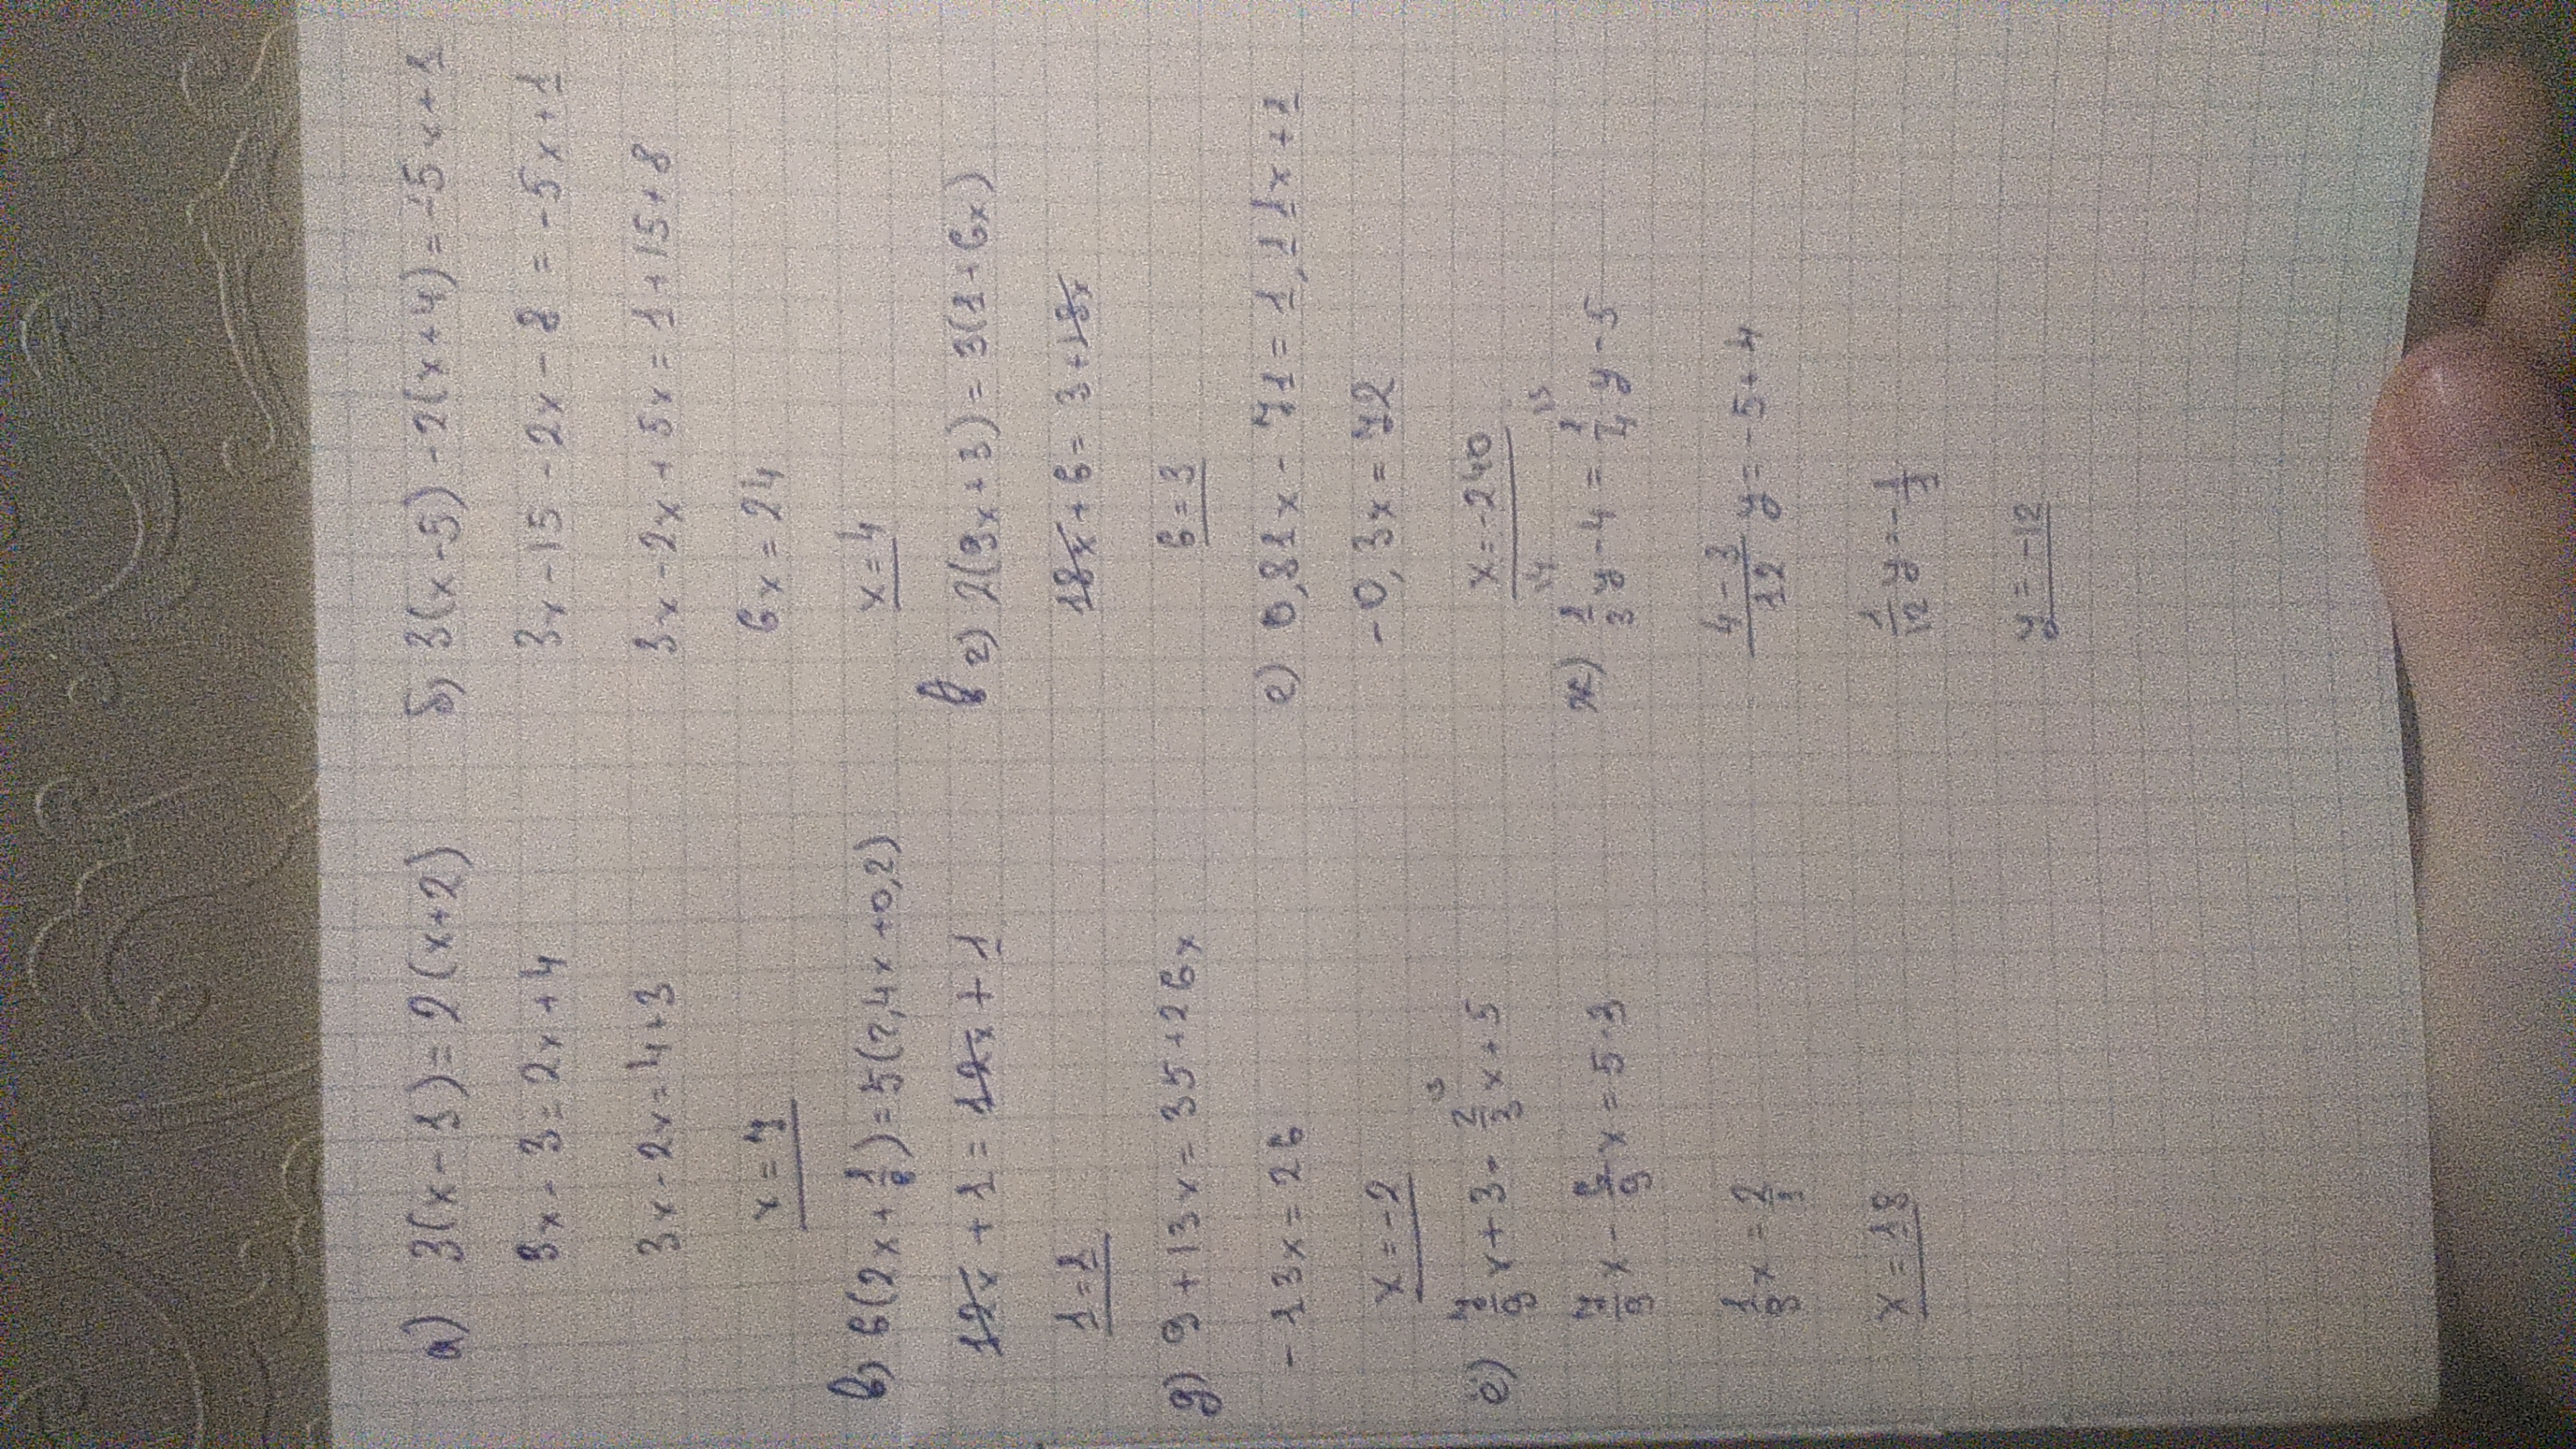 а) 3(x-1)=2(x+2)
3x-3=2x+4
3x-2x=4+3
x=7
б) 3(x-5)-2(x+4)=-5x+1
3x-15-2x-8=-5x+1
3x-2x+5x=1+15+8
6x=24
x=4
в) 6(2x+1/6)=5(2,4x+0,2)
12x+1=12x+1
1=1
г) 2(9x+3)=3(1+6x)
18x+6=3+18x
6=3
д) 9+13x=35+26x
-13x=26
x=-2
е) 0,81x-71=1,11x+1
-0,3x=72
x=-240
ё) 7/9 x+3=2/3 x+5
7/9 x-6/9 x=5-3
1/9 x=2/1
x=18
ж) 1/3 y-4=1/4 y-5
4-3/12 y=-5+4
1/12 y=-1/1
y=-12